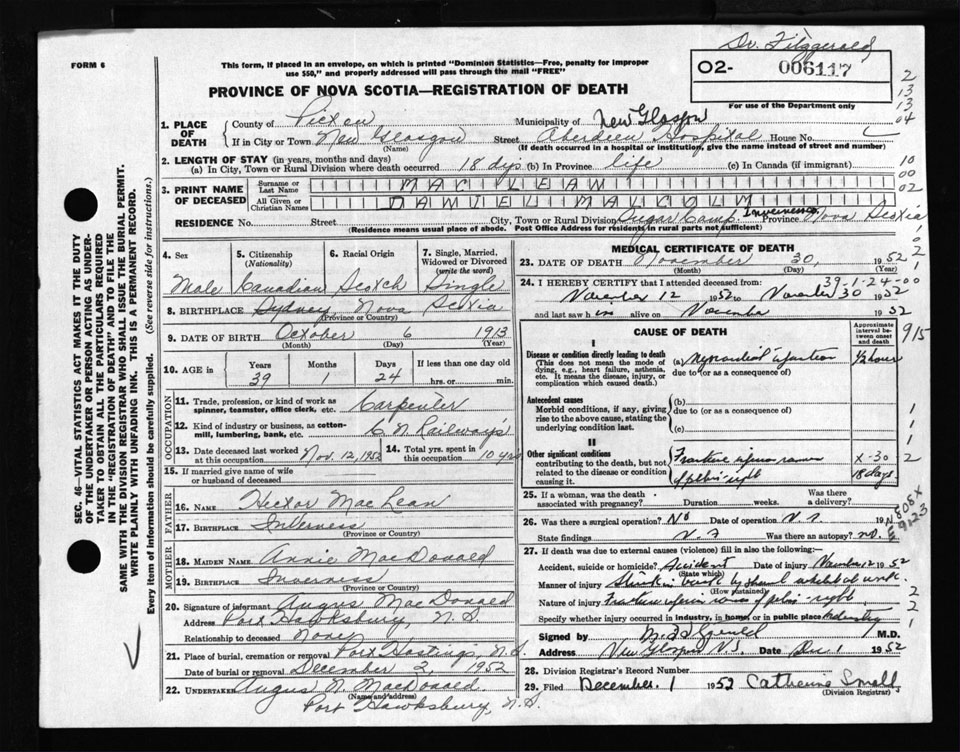 Dr. Fitzgerald
FORM 6
This form, if placed in an envelope, on which is printed "Dominion Statistics—Free, penalty for improper
use $50," and properly addressed will pass through the mail "FREE"
02- 006117
For use of the Department only
PROVINCE OF NOVA SCOTIA—REGISTRATION OF DEATH
1. PLACE OF DEATH
County of Pictou Municipality of New Glasgow
If in City or Town New Glasgow Street Aberdeen Hospital House No.
(Name) (If death occurred in a hospital or institution, give the name instead of street and number)
2. LENGTH OF STAY (in years, months and days)
(a) In City, Town or Rural Division where death occurred 18 dys (b) In Province life (c) In Canada (if immigrant)
3. PRINT NAME OF DECEASED
Surname or Last Name MAC LEAN
All Given or Christian Names DANIEL MALCOLM
RESIDENCE No. Street City, Town or Rural Division Sugar Camp. Inverness Province Nova Scotia
(Residence means usual place of abode. Post Office Address for residents in rural parts not sufficient)
4. Sex Male
5. Citizenship (Nationality) Canadian
6. Racial Origin Scotch
7. Single, Married, Widowed or Divorced (write the word) Single
8. BIRTHPLACE Sydney Nova Scotia
(Province or Country)
9. DATE OF BIRTH October 6 1913
(Month) (Day) (Year)
10. AGE in Years 39 Months 1 Days 24 If less than one day old hrs. or min.
OCCUPATION
11. Trade, profession, or kind of work as spinner, teamster, office clerk, etc. Carpenter
12. Kind of industry or business, as cotton-mill, lumbering, bank, etc. C N Railways
13. Date deceased last worked at this occupation Nov. 12, 1952
14. Total yrs. spent in this occupation 10 yrs
15. If married give name of wife or husband of deceased
FATHER
16. NAME Hector MacLean
17. BIRTHPLACE Inverness
(Province or Country)
MOTHER
18. MAIDEN NAME Annie MacDonald
19. BIRTHPLACE Inverness
(Province or Country)
20. Signature of informant Angus MacDonald
Address Port Hawksbury, N.S.
Relationship to deceased None
21. Place of burial, cremation or removal Port Hastings, N.S.
Date of burial or removal December 2, 1952
22. UNDERTAKER Angus N. MacDonald
(Name and address)
Port Hawksbury, N.S.
MEDICAL CERTIFICATE OF DEATH
23. DATE OF DEATH November 30, 1952
(Month) (Day) (Year)
39-1-24-00
24. I HEREBY CERTIFY that I attended deceased from:
November 12 1952 to November 30 1952
and last saw him alive on November 1952
CAUSE OF DEATH
Approximate interval between onset and death
915
I
Disease or condition directly leading to death
(This does not mean the mode of dying, e.g., heart failure, asthenia, etc. It means the disease, injury, or complication which caused death.)
(a) Myocardial infarction ½ hour
due to (or as a consequence of)
Antecedent causes
Morbid conditions, if any, giving rise to the above cause, stating the underlying condition last.
(b)
due to (or as a consequence of)
(c)
II
Other significant conditions contributing to the death, but not related to the disease or condition causing it.
Fracture inferior ramus of pelvis - right
X-30
18 days
25. If a woman, was the death associated with pregnancy? Duration weeks. Was there a delivery?
26. Was there a surgical operation? No Date of operation 19
State findings Was there an autopsy? no.
27. If death was due to external causes (violence) fill in also the following:—
Accident, suicide or homicide? Accident Date of injury November 12 1952
(State which)
Manner of injury Struck in back by shovel while at work.
(How sustained)
Nature of injury Fracture inferior ramus of pelvis - right
Specify whether injury occurred in industry, in home, or in public place Industry
Signed by M.D.
Address New Glasgow N.S. Date Dec 1 1952
28. Division Registrar's Record Number
29. Filed December. 1 1952 Catherine Small
(Division Registrar)
SEC. 46—VITAL STATISTICS ACT MAKES IT THE DUTY
OF THE UNDERTAKER OR PERSON ACTING AS UNDER-
TAKER TO OBTAIN ALL THE PARTICULARS REQUIRED
IN THE "REGISTRATION OF DEATH" AND TO FILE THE
SAME WITH THE DIVISION REGISTRAR WHO SHALL ISSUE THE BURIAL PERMIT.
WRITE PLAINLY WITH UNFADING INK. THIS IS A PERMANENT RECORD.
Every item of information should be carefully supplied. (See reverse side for instructions.)